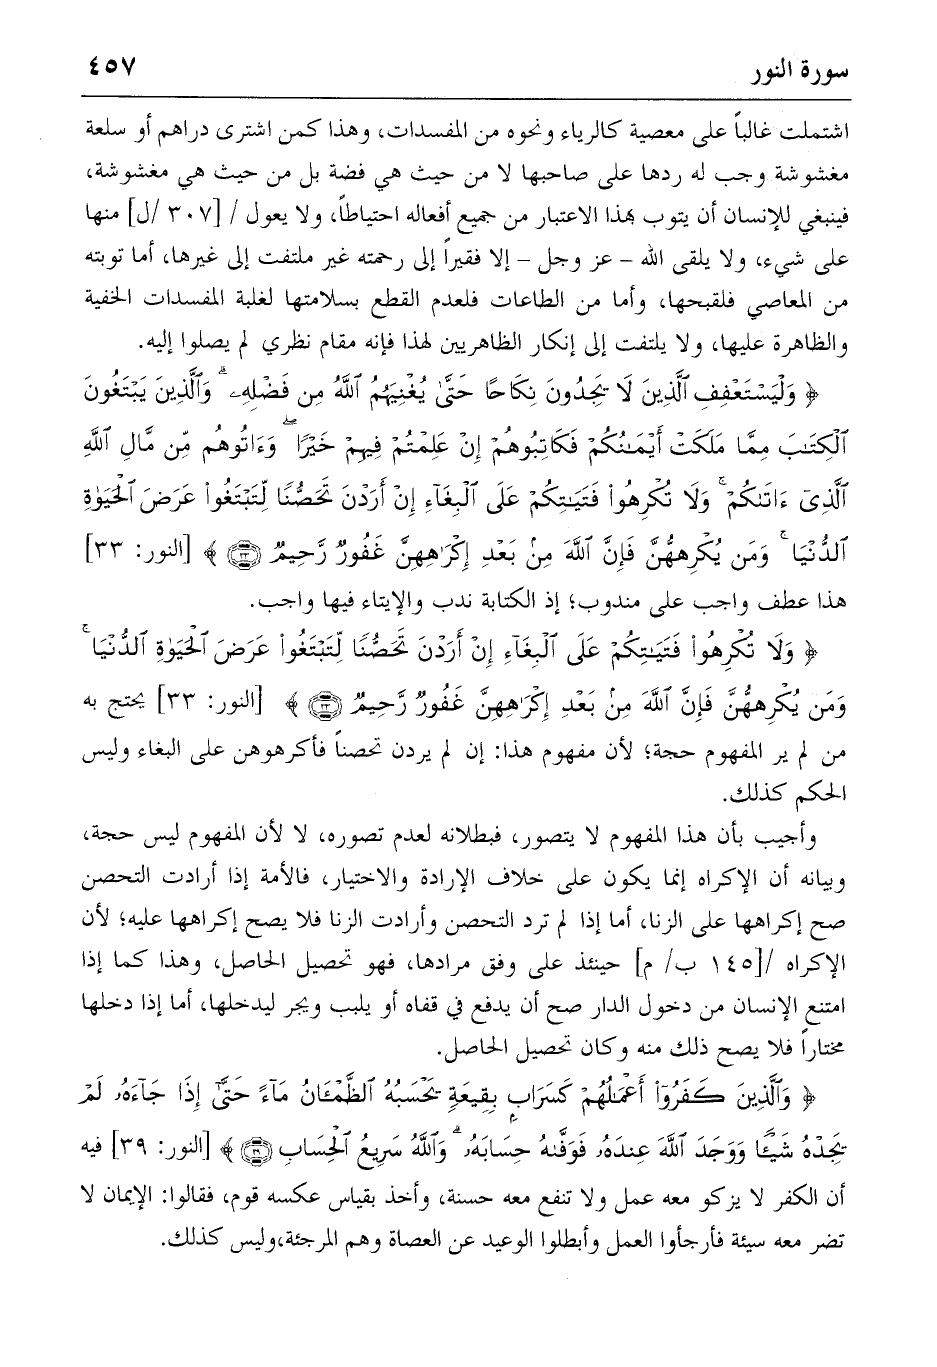 سورة النور ٤٥٧
اشتملت غالباً على معصية كالرياء ونحوه من المفسدات، وهذا كمن اشترى دراهم أو سلعة
مغشوشة وجب له ردها على صاحبها لا من حيث هي فضة بل من حيث هي مغشوشة،
فينبغي للإنسان أن يتوب بهذا الاعتبار من جميع أفعاله احتياطاً، ولا يعول / [٣٠٧ /ل] منها
على شيء، ولا يلقى الله – عز وجل – إلا فقيراً إلى رحمته غير ملتفت إلى غيرها، أما توبته
من المعاصي فلقبحها، وأما من الطاعات فلعدم القطع بسلامتها لغلبة المفسدات الخفية
والظاهرة عليها، ولا يلتفت إلى إنكار الظاهريين لهذا فإنه مقام نظري لم يصلوا إليه.
﴿ وَلْيَسْتَعْفِفِ ٱلَّذِينَ لَا يَجِدُونَ نِكَاحًا حَتَّىٰ يُغْنِيَهُمُ ٱللَّهُ مِن فَضْلِهِۦ ۗ وَٱلَّذِينَ يَبْتَغُونَ
ٱلْكِتَٰبَ مِمَّا مَلَكَتْ أَيْمَٰنُكُمْ فَكَاتِبُوهُمْ إِنْ عَلِمْتُمْ فِيهِمْ خَيْرًا ۖ وَءَاتُوهُم مِّن مَّالِ ٱللَّهِ
ٱلَّذِىٓ ءَاتَىٰكُمْ ۚ وَلَا تُكْرِهُوا۟ فَتَيَٰتِكُمْ عَلَى ٱلْبِغَآءِ إِنْ أَرَدْنَ تَحَصُّنًا لِّتَبْتَغُوا۟ عَرَضَ ٱلْحَيَوٰةِ
ٱلدُّنْيَا ۚ وَمَن يُكْرِههُّنَّ فَإِنَّ ٱللَّهَ مِنۢ بَعْدِ إِكْرَٰهِهِنَّ غَفُورٌ رَّحِيمٌ ٣٣ ﴾ [النور: ٣٣]
هذا عطف واجب على مندوب؛ إذ الكتابة ندب والإيتاء فيها واجب.
﴿ وَلَا تُكْرِهُوا۟ فَتَيَٰتِكُمْ عَلَى ٱلْبِغَآءِ إِنْ أَرَدْنَ تَحَصُّنًا لِّتَبْتَغُوا۟ عَرَضَ ٱلْحَيَوٰةِ ٱلدُّنْيَا ۚ
وَمَن يُكْرِههُّنَّ فَإِنَّ ٱللَّهَ مِنۢ بَعْدِ إِكْرَٰهِهِنَّ غَفُورٌ رَّحِيمٌ ٣٣ ﴾ [النور: ٣٣] يحتج به
من لم ير المفهوم حجة؛ لأن مفهوم هذا: إن لم يردن تحصناً فأكرهوهن على البغاء وليس
الحكم كذلك.
وأجيب بأن هذا المفهوم لا يتصور، فبطلانه لعدم تصوره، لا لأن المفهوم ليس حجة،
وبيانه أن الإكراه إنما يكون على خلاف الإرادة والاختيار، فالأمة إذا أرادت التحصن
صح إكراهها على الزنا، أما إذا لم ترد التحصن وأرادت الزنا فلا يصح إكراهها عليه؛ لأن
الإكراه /[١٤٥ ب/ م] حينئذ على وفق مرادها، فهو تحصيل الحاصل، وهذا كما إذا
امتنع الإنسان من دخول الدار صح أن يدفع في قفاه أو يلبب ويجر ليدخلها، أما إذا دخلها
مختاراً فلا يصح ذلك منه وكان تحصيل الحاصل.
﴿ وَٱلَّذِينَ كَفَرُوٓا۟ أَعْمَٰلُهُمْ كَسَرَابٍۭ بِقِيعَةٍ يَحْسَبُهُ ٱلظَّمْـَٔانُ مَآءً حَتَّىٰٓ إِذَا جَآءَهُۥ لَمْ
يَجِدْهُ شَيْـًٔا وَوَجَدَ ٱللَّهَ عِندَهُۥ فَوَفَّىٰهُ حِسَابَهُۥ ۗ وَٱللَّهُ سَرِيعُ ٱلْحِسَابِ ٣٩ ﴾ [النور: ٣٩] فيه
أن الكفر لا يزكو معه عمل ولا تنفع معه حسنة، وأخذ بقياس عكسه قوم، فقالوا: الإيمان لا
تضر معه سيئة فأرجأوا العمل وأبطلوا الوعيد عن العصاة وهم المرجئة،وليس كذلك.